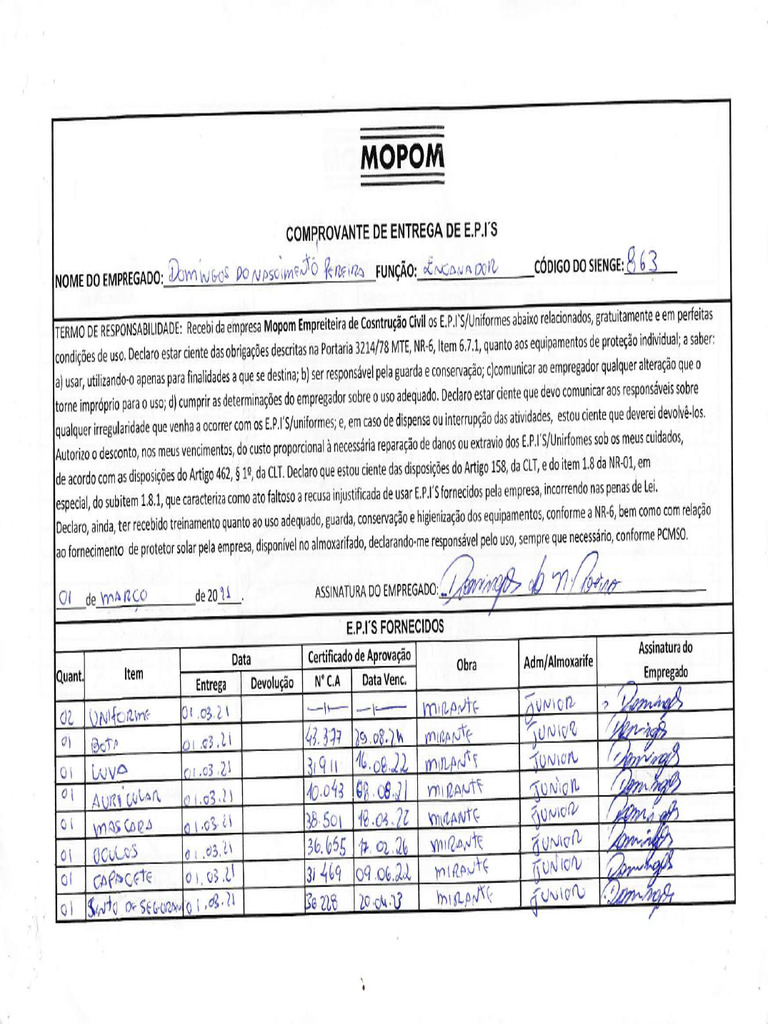 MOPOM
COMPROVANTE DE ENTREGA DE E.P.I´S
NOME DO EMPREGADO: DOMINGOS DO NASCIMENTO PEREIRA FUNÇÃO: ENCANADOR CÓDIGO DO SIENGE: 863
TERMO DE RESPONSABILIDADE: Recebi da empresa Mopom Empreiteira de Cosntrução Civil os E.P.I´S/Uniformes abaixo relacionados, gratuitamente e em perfeitas
condições de uso. Declaro estar ciente das obrigações descritas na Portaria 3214/78 MTE, NR-6, Item 6.7.1, quanto aos equipamentos de proteção individual; a saber:
a) usar, utilizando-o apenas para finalidades a que se destina; b) ser responsável pela guarda e conservação; c)comunicar ao empregador qualquer alteração que o
torne impróprio para o uso; d) cumprir as determinações do empregador sobre o uso adequado. Declaro estar ciente que devo comunicar aos responsáveis sobre
qualquer irregularidade que venha a ocorrer com os E.P.I´S/uniformes; e, em caso de dispensa ou interrupção das atividades, estou ciente que deverei devolvê-los.
Autorizo o desconto, nos meus vencimentos, do custo proporcional à necessária reparação de danos ou extravio dos E.P.I´S/Unirfomes sob os meus cuidados,
de acordo com as disposições do Artigo 462, § 1º, da CLT. Declaro que estou ciente das disposições do Artigo 158, da CLT, e do item 1.8 da NR-01, em
especial, do subitem 1.8.1, que caracteriza como ato faltoso a recusa injustificada de usar E.P.I´S fornecidos pela empresa, incorrendo nas penas de Lei.
Declaro, ainda, ter recebido treinamento quanto ao uso adequado, guarda, conservação e higienização dos equipamentos, conforme a NR-6, bem como com relação
ao fornecimento de protetor solar pela empresa, disponível no almoxarifado, declarando-me responsável pelo uso, sempre que necessário, conforme PCMSO.
01 de MARÇO de 20 ASSINATURA DO EMPREGADO: Domingos do N. Pereira
E.P.I´S FORNECIDOS
Quant. Item Data Certificado de Aprovação Obra Adm/Almoxarife Assinatura do Empregado
Entrega Devolução N° C.A Data Venc.
02 UNIFORME 01.03.21 MIRANTE JUNIOR Domingos
01 BOTA 01.03.21 43.377 MIRANTE JUNIOR Domingos
01 LUVA 01.03.21 31911 16.08.22 MIRANTE JUNIOR Domingos
01 AURICULAR 01.03.21 10.043 MIRANTE JUNIOR Domingos
01 MASCARA 01.03.21 38.501 18.03.22 MIRANTE JUNIOR Domingos
01 OCULOS 01.03.21 36.655 17.02.26 MIRANTE JUNIOR Domingos
01 CAPACETE 01.03.21 31469 09.06.22 MIRANTE JUNIOR Domingos
01 SINTO DE SEGURAN 01.03.21 36228 20.04.23 MIRANTE JUNIOR Domingos